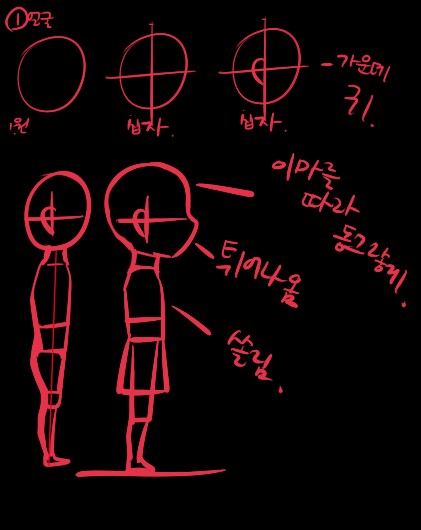 ① 얼굴
원
십자.
십자.
-가운데
귀.
이마를
따라
동그랗게.
튀어나옴
쏠림.